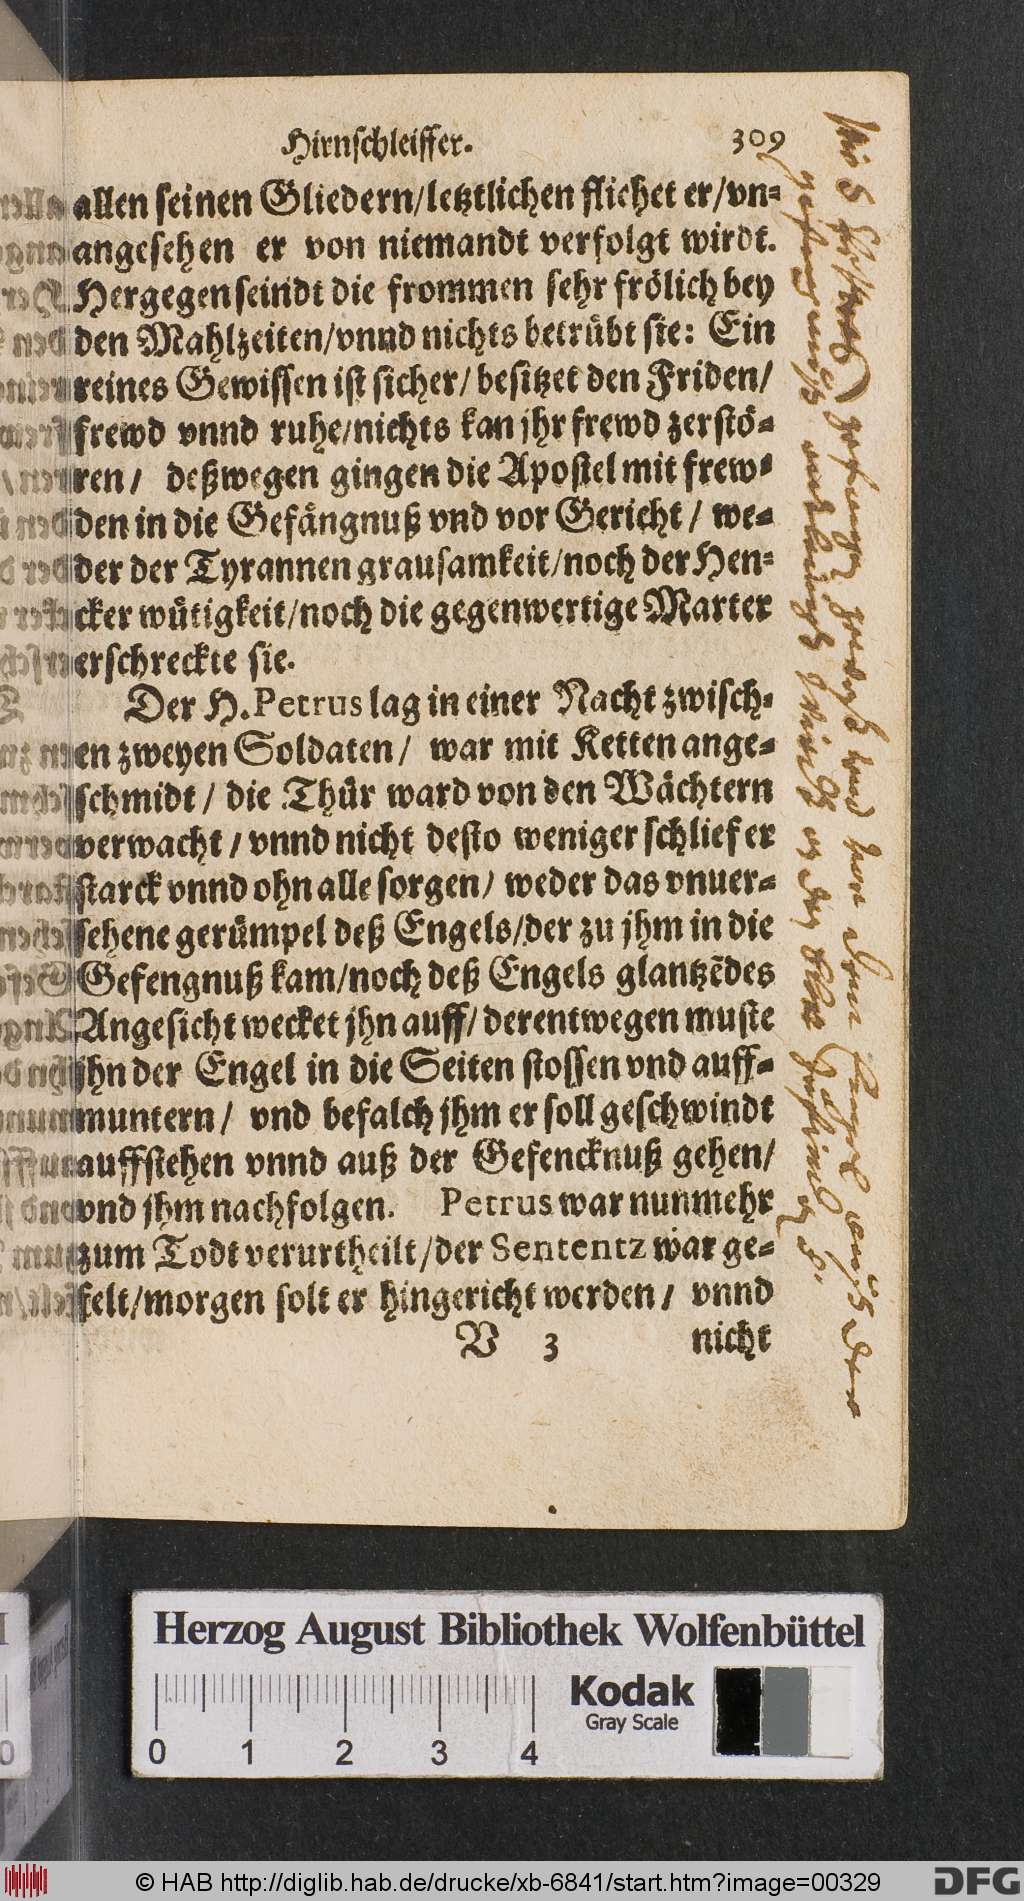 Hirnschleiffer. 309
allen seinen Gliedern/letztlichen fliehet er/vn-
angesehen er von niemandt verfolgt wirdt.
Hergegen seindt die frommen sehr frölich bey
den Mahlzeiten/vnnd nichts betrübt sie: Ein
reines Gewissen ist sicher/besitzet den Friden/
frewd vnnd ruhe/nichts kan jhr frewd zerstö-
ren/ deßwegen gingen die Apostel mit frew-
den in die Gefängnuß vnd vor Gericht/ we-
der der Tyrannen grausamkeit/noch der Hen-
cker wütigkeit/noch die gegenwertige Marter
erschreckte sie.
Der H. Petrus lag in einer Nacht zwisch-
en zweyen Soldaten/ war mit Ketten ange-
schmidt/ die Thür ward von den Wächtern
verwacht/vnnd nicht desto weniger schlief er
starck vnnd ohn alle sorgen/ weder das vnuer-
sehene gerümpel deß Engels/der zu jhm in die
Gefengnuß kam/noch deß Engels glantzēdes
Angesicht wecket jhn auff/derentwegen muste
jhn der Engel in die Seiten stossen vnd auff-
muntern/ vnd befalch jhm er soll geschwindt
auffstehen vnnd auß der Gefencknuß gehen/
vnd jhm nachfolgen. Petrus war nunmehr
zum Todt verurtheilt/der Sententz war ge-
felt/morgen solt er hingericht werden/ vnnd
V 3 nicht
Herzog August Bibliothek Wolfenbüttel
Kodak
Gray Scale
0 1 2 3 4
© HAB http://diglib.hab.de/drucke/xb-6841/start.htm?image=00329
DFG